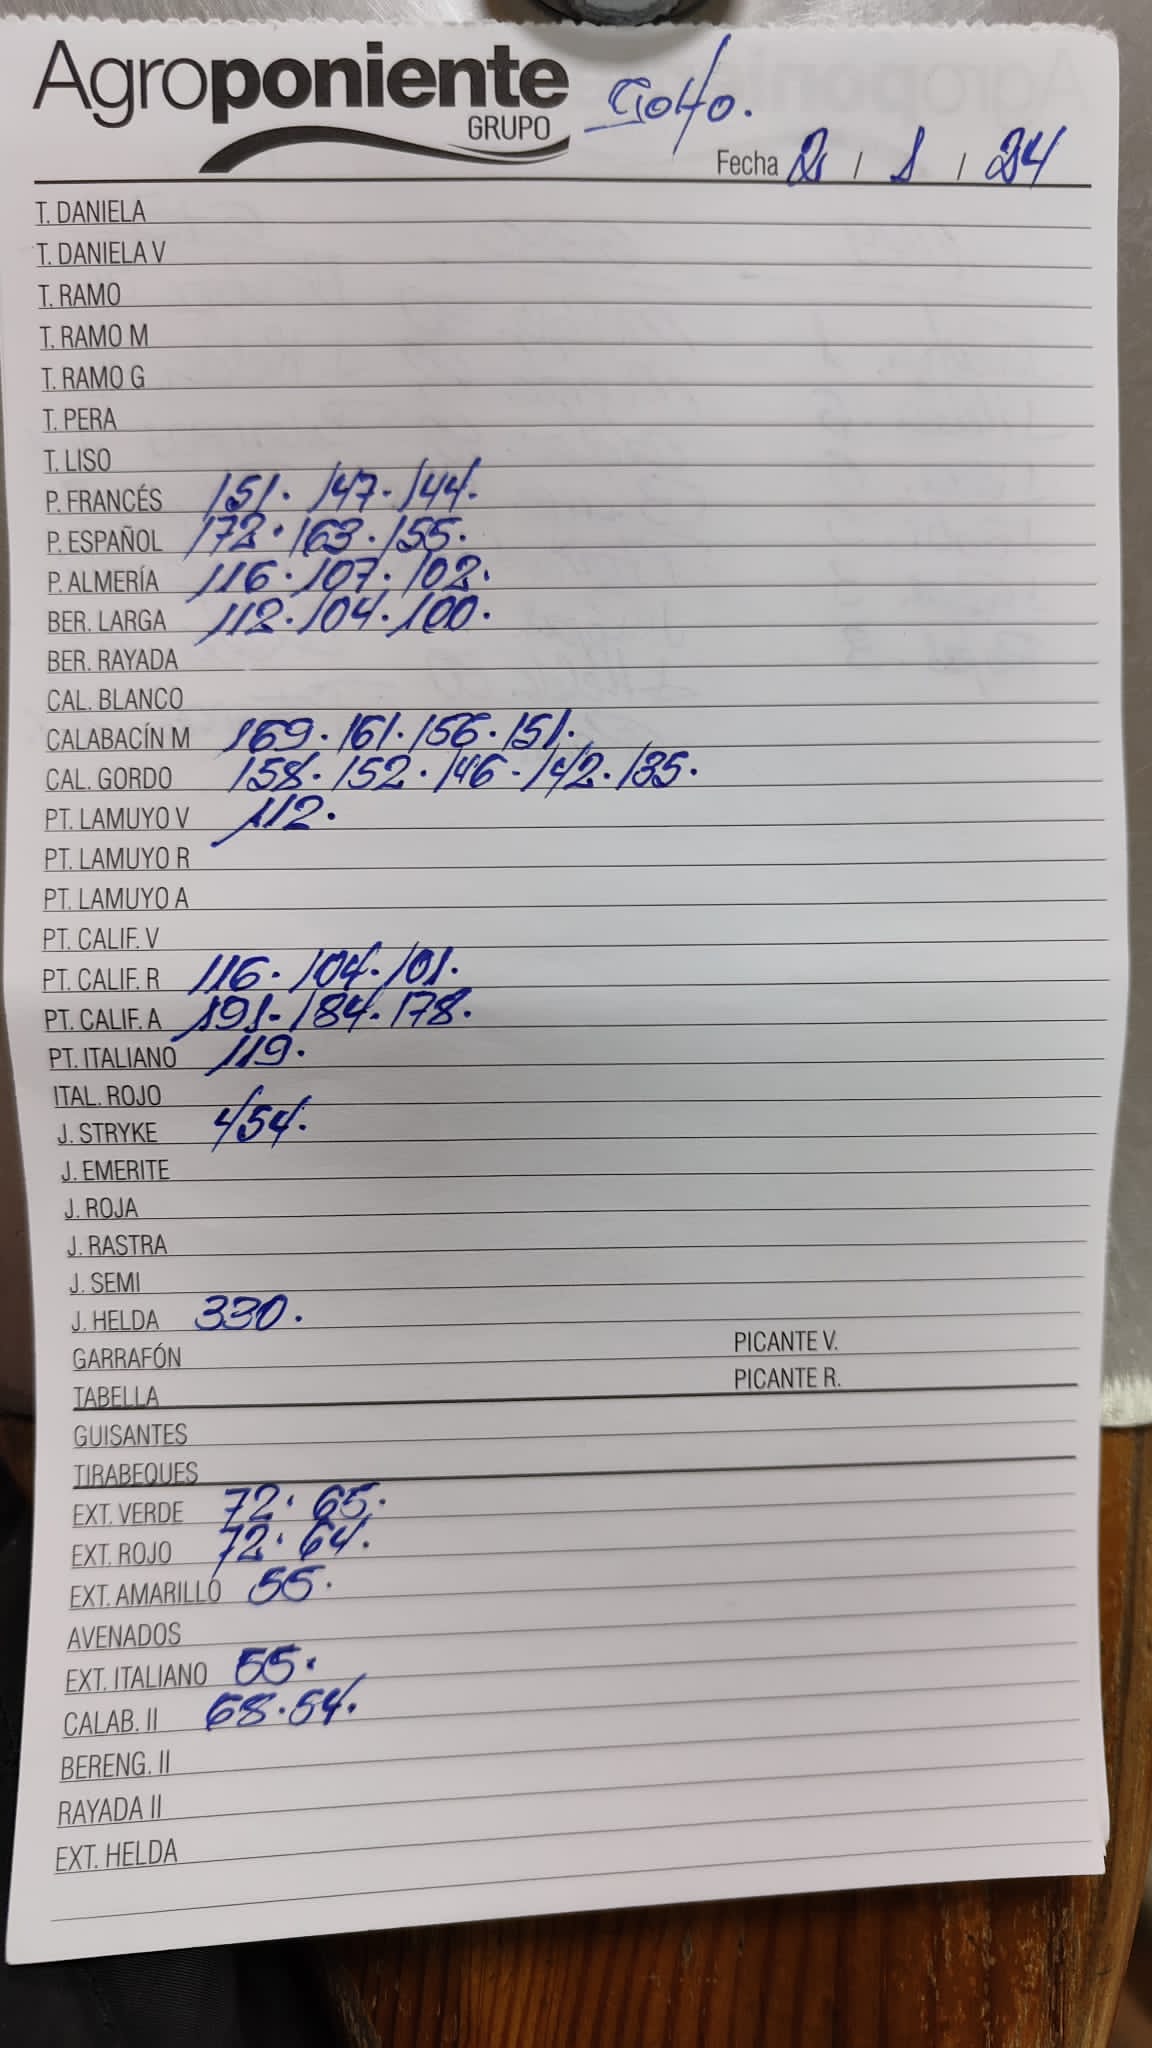 Agroponiente
GRUPO
Golfo.
Fecha 2 / 1 / 24
T. DANIELA
T. DANIELA V
T. RAMO
T. RAMO M
T. RAMO G
T. PERA
T. LISO
P. FRANCÉS 151. 147. 144.
P. ESPAÑOL 172. 163. 155.
P. ALMERÍA 116. 107. 102.
BER. LARGA 112. 104. 100.
BER. RAYADA
CAL. BLANCO
CALABACÍN M 169. 161. 156. 151.
CAL. GORDO 158. 152. 146. 142. 135.
PT. LAMUYO V 112.
PT. LAMUYO R
PT. LAMUYO A
PT. CALIF. V
PT. CALIF. R 116. 104. 101.
PT. CALIF. A 191. 184. 178.
PT. ITALIANO 119.
ITAL. ROJO
J. STRYKE 454.
J. EMERITE
J. ROJA
J. RASTRA
J. SEMI
J. HELDA 330.
GARRAFÓN PICANTE V.
TABELLA PICANTE R.
GUISANTES
TIRABEQUES
EXT. VERDE 72. 65.
EXT. ROJO 72. 64.
EXT. AMARILLO 55.
AVENADOS
EXT. ITALIANO 55.
CALAB. II 68. 54.
BERENG. II
RAYADA II
EXT. HELDA